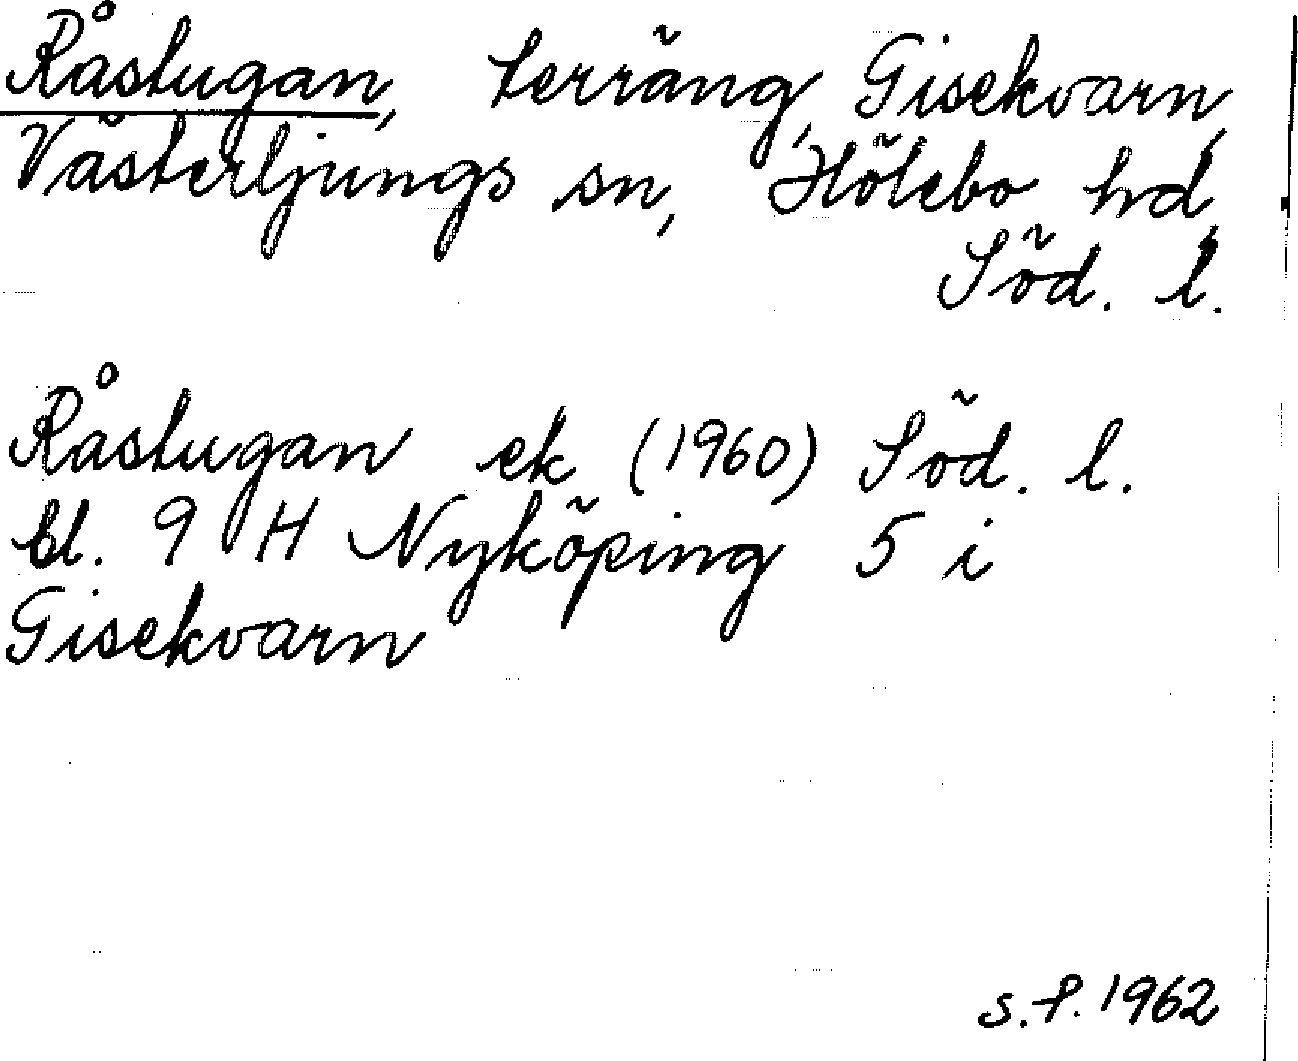 Råstugan, terräng, Gisekvarn,
Västerljungs sn, Hölebo hd,
Söd. l.
Råstugan ek (1960) Söd. l.
bl. 9 H Nyköping 5 i
Gisekvarn
s.f. 1962